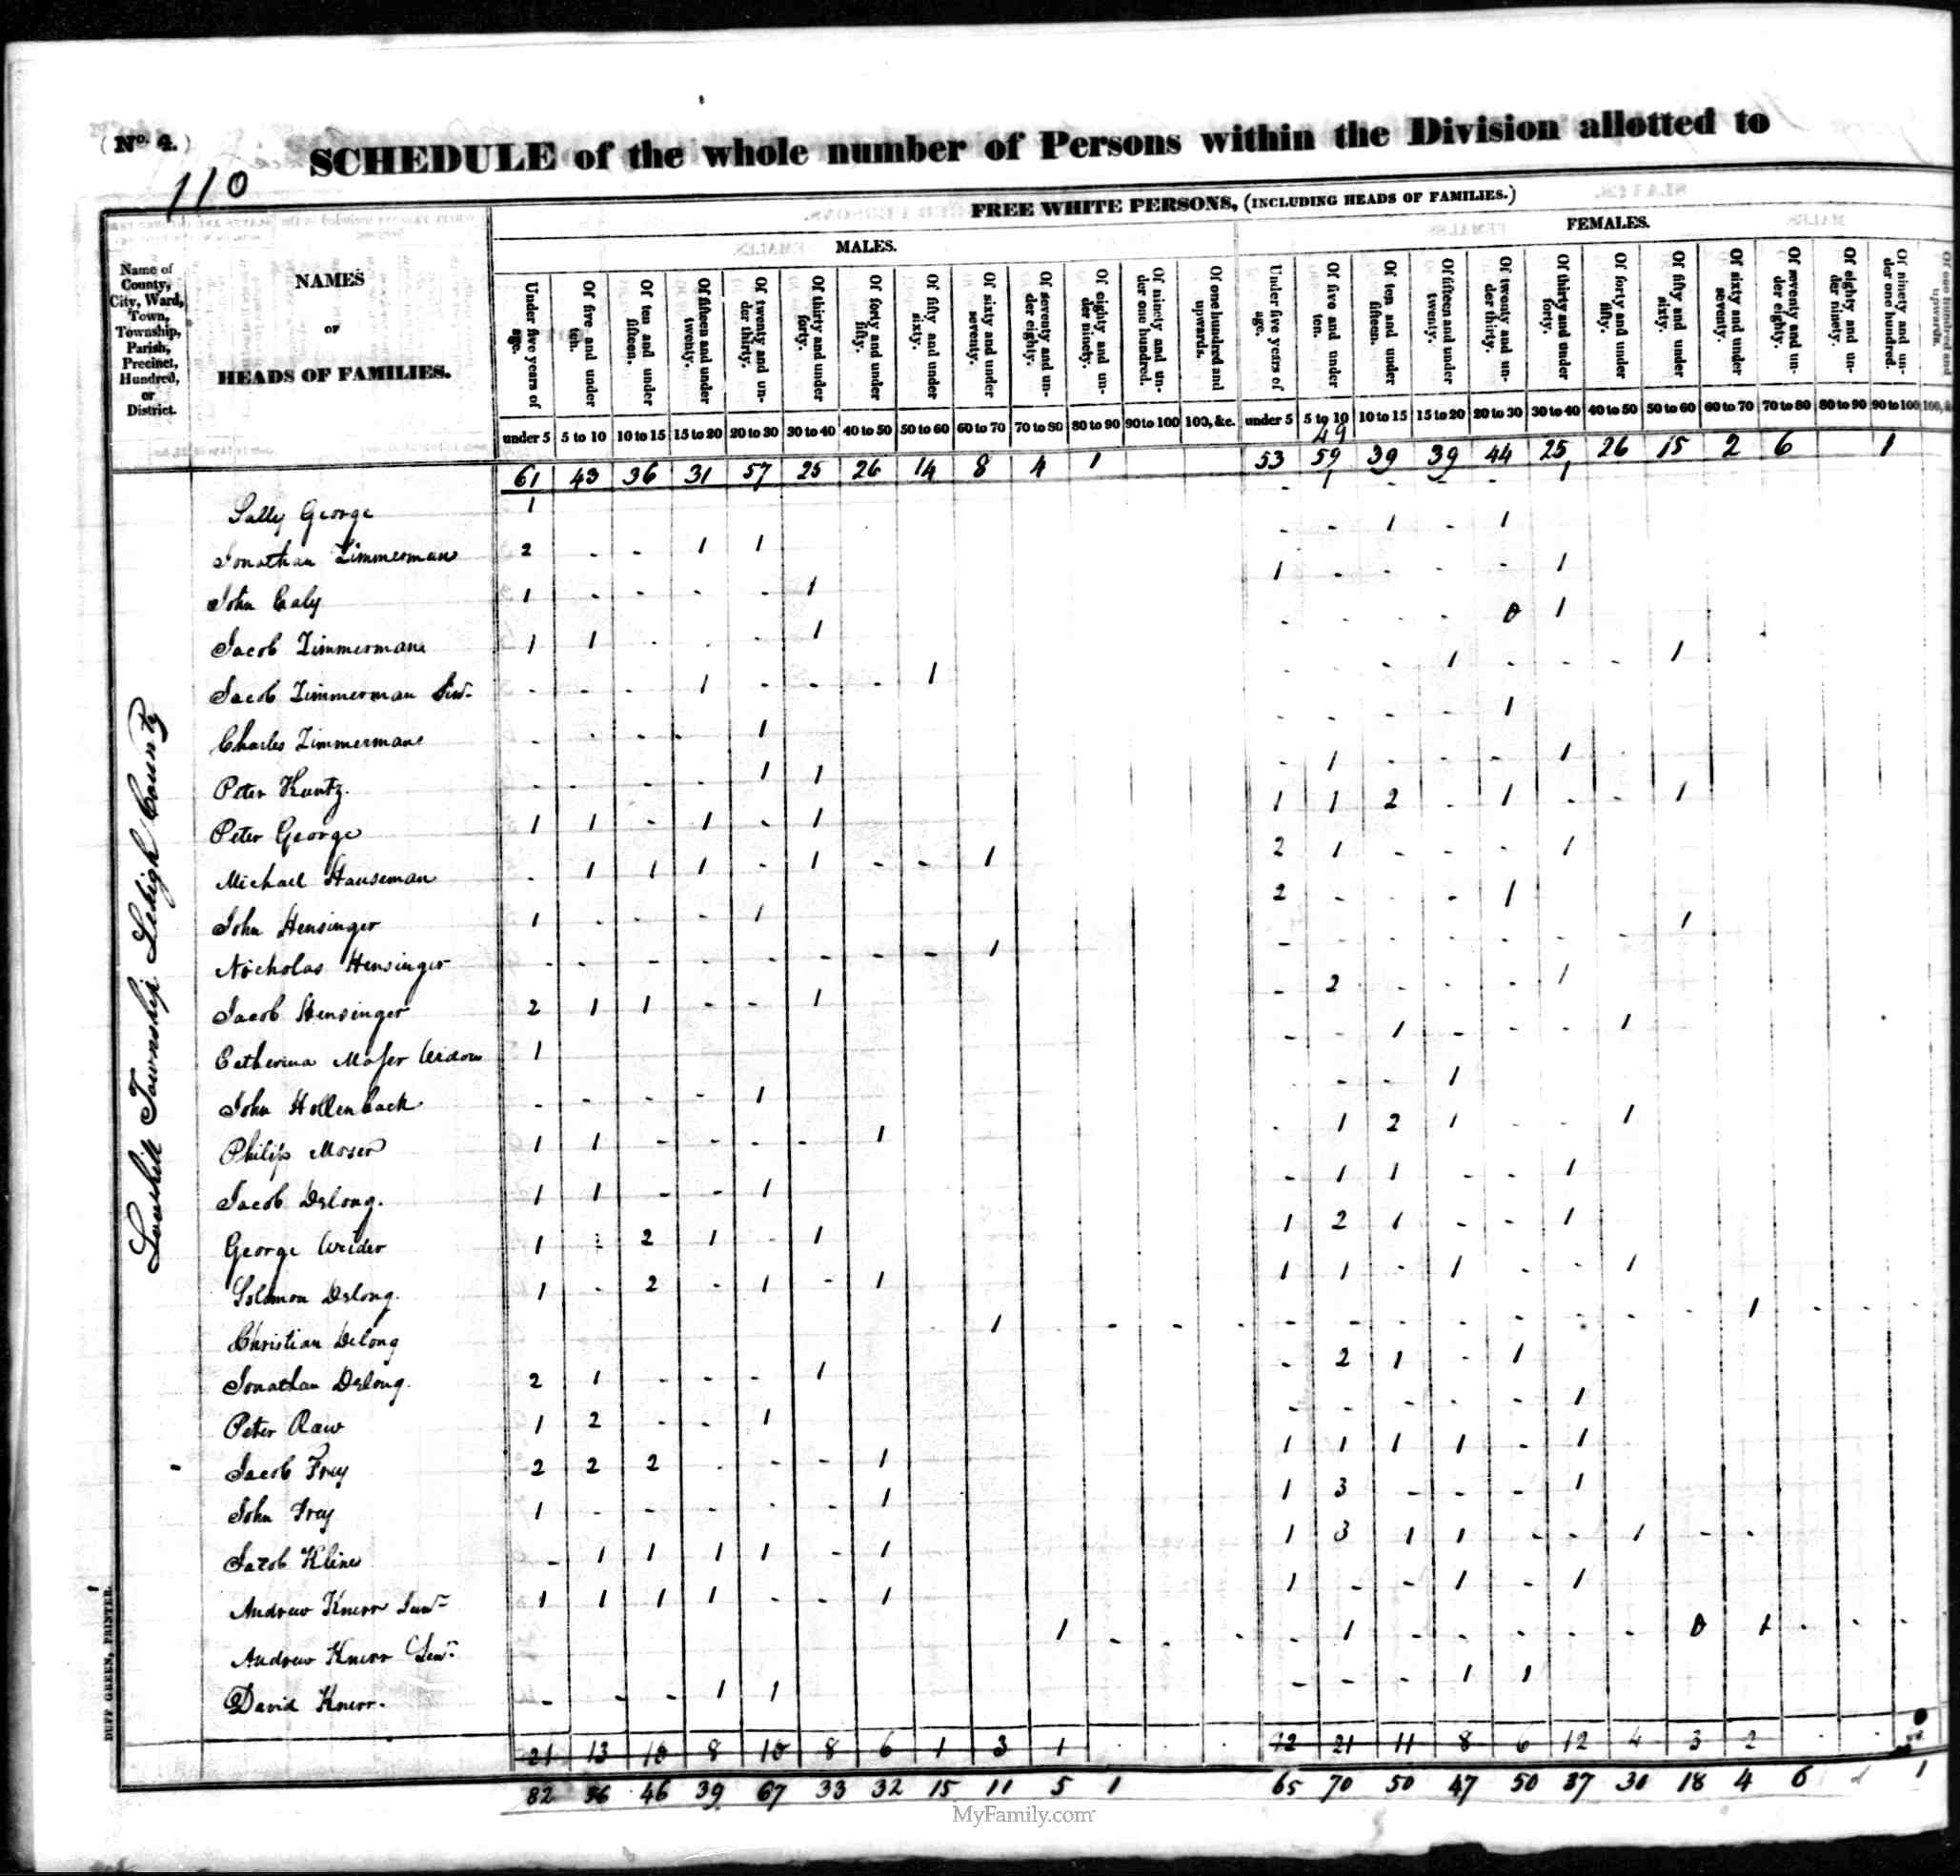 (No. 4.)
SCHEDULE of the whole number of Persons within the Division allotted to
110
FREE WHITE PERSONS, (INCLUDING HEADS OF FAMILIES.)
MALES. FEMALES.
Name of County, City, Ward, Town, Township, Parish, Precinct, Hundred, or District.
NAMES
OF
HEADS OF FAMILIES.
Under five years of age. Of five and under ten. Of ten and under fifteen. Of fifteen and under twenty. Of twenty and under thirty. Of thirty and under forty. Of forty and under fifty. Of fifty and under sixty. Of sixty and under seventy. Of seventy and under eighty. Of eighty and under ninety. Of ninety and under one hundred. Of one hundred and upwards. Under five years of age. Of five and under ten. Of ten and under fifteen. Of fifteen and under twenty. Of twenty and under thirty. Of thirty and under forty. Of forty and under fifty. Of fifty and under sixty. Of sixty and under seventy. Of seventy and under eighty. Of eighty and under ninety. Of ninety and under one hundred. Of one hundred and upwards.
under 5 5 to 10 10 to 15 15 to 20 20 to 30 30 to 40 40 to 50 50 to 60 60 to 70 70 to 80 80 to 90 90 to 100 100, &c. under 5 5 to 10 10 to 15 15 to 20 20 to 30 30 to 40 40 to 50 50 to 60 60 to 70 70 to 80 80 to 90 90 to 100
49
61 43 36 31 57 25 26 14 8 4 1 53 59 39 39 44 25 26 15 2 6 1
Lowhill Township Lehigh County
Sally George 1 - 1 - - - 1
Jonathan Zimmerman 2 - - 1 1 - - 1 - 1
John Ealy 1 - - - - 1 1 - - - - 1
Jacob Zimmerman 1 1 - - - 1 - - - - 0 1
Jacob Zimmerman Sen. - - - 1 - - - 1 - - - 1 - - - 1
Charles Zimmerman - - - - 1 - - - - 1
Peter Kuntz - - - - 1 1 - 1 - - - 1
Peter George 1 1 - 1 - 1 1 1 2 - 1 - - 1
Michael Hauseman - 1 1 1 - 1 - - 1 2 1 - - - 1
John Hensinger 1 - - - 1 2 - - - 1
Nicholas Hensinger - - - - - - - - 1 - - - - - - - 1
Jacob Hensinger 2 1 1 - - 1 - 2 - - - 1
Catherina Moser Widow 1 - - 1 - - - 1
John Hollenback - - - - 1 - - - 1
Philip Moser 1 1 - - - - 1 - 1 2 1 - - 1
Jacob Delong. 1 1 - - 1 - 1 1 - - 1
George Weider 1 - 2 1 - 1 1 2 1 - - 1
Solomon Delong. 1 - 2 - 1 - 1 1 1 - 1 - - 1
Christian Delong 1 - - - - - - - - - - - 1 - - -
Jonathan Delong. 2 1 - - - 1 - 2 1 - 1
Peter Raw 1 2 - - 1 - - - - - 1
Jacob Frey 2 2 2 - - - 1 1 1 1 1 - 1
John Frey 1 - - - - - 1 1 3 - - - 1
Jacob Kline - 1 1 1 1 - 1 1 3 1 1 - - 1 - -
Andrew Knerr Jun. 1 1 1 1 - - 1 1 - - 1 - 1
Andrew Knerr Sen. 1 - - - - 1 - - - - - 0 1 - - -
David Knerr. - - - 1 1 - - - 1 1
21 13 10 8 10 8 6 1 3 1 12 21 11 8 6 12 4 3 2
82 56 46 39 67 33 32 15 11 5 1 65 70 50 47 50 37 30 18 4 6 1
DUFF GREEN, PRINTER.
MyFamily.com